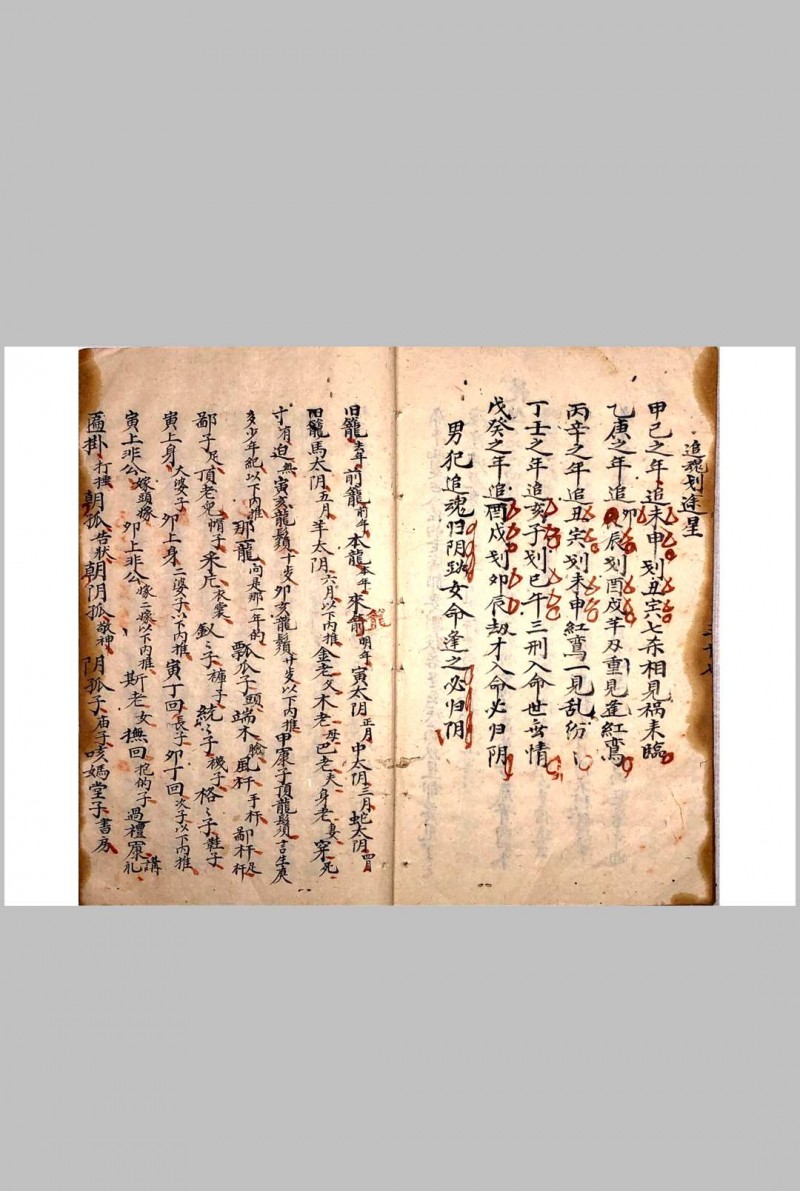 追魂刬途星
甲己之年追未申刬丑寅七杀相見祸来臨
乙庚之年追卯辰刬酉戌羊刄重見逢紅鸞
丙辛之年追丑寅刬未申紅鸞一見乱纷
丁壬之年追亥子刬巳午三刑入命世無情
戊癸之年追酉戌刬卯辰劫才入命必归阴
男犯追魂归阴路女命逢之必归阴
旧籠去年前籠前年本籠本年來籠明年寅太阴正月申太阴三月蛇太阴四月
籠
旧籠馬太阴五月羊太阴六月以下内推金老父木老母巴老夫身老妻穿死
寸有迫無寅亥龍鬚十岁卯亥龍鬚廿岁以下内推甲寡子頂龍鬚言生庚
多少年紀以下内推那籠问是那一年的瓢瓜子頭端木臉風杆手杆鄙杆足杆
鄙子足頂老皃帽子采片衣裳釵々子褲子統々子襪子格々子鞋子
寅上身大婆子卯上身二婆子以下内推寅丁回長子卯丁回次子以下内推
寅上非公嫁頭嫁卯上非公嫁二嫁以下内推斯老女撫回抱的子過禮寡講礼
匾掛打挂朝孤告状朝阴孤敬神阴孤子庙子咳媽堂子書房